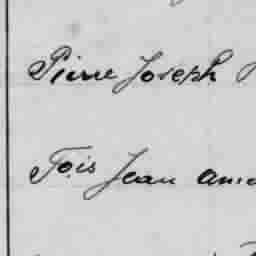 Pierre Joseph
Fois Jean